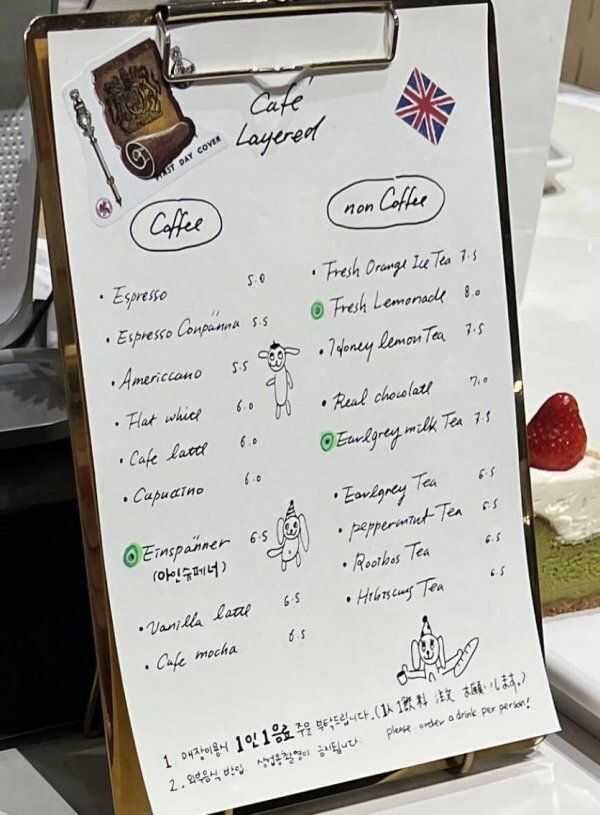 FIRST DAY COVER
Café
Layered
Coffee
• Espresso 5.0
• Espresso Conpänna 5.5
• Americcano 5.5
• Flat white 6.0
• Cafe latte 6.0
• Capuccino 6.0
Einspänner 6.5
(아인슈페너)
• Vanilla latte 6.5
• Cafe mocha 6.5
non Coffee
• Fresh Orange Ice Tea 7.5
Fresh Lemonade 8.0
• Honey lemon Tea 7.5
• Real chocolate 7.0
Earlgrey milk Tea 7.5
• Earlgrey Tea 6.5
• peppermint Tea 6.5
• Rooibos Tea 6.5
• Hibiscus Tea 6.5
1 매장이용시 1인 1음료 주문 부탁드립니다. (1人 1飲料 注文 お願いします。)
please order a drink per person!
2. 외부음식 반입 상업용촬영이 금지됩니다